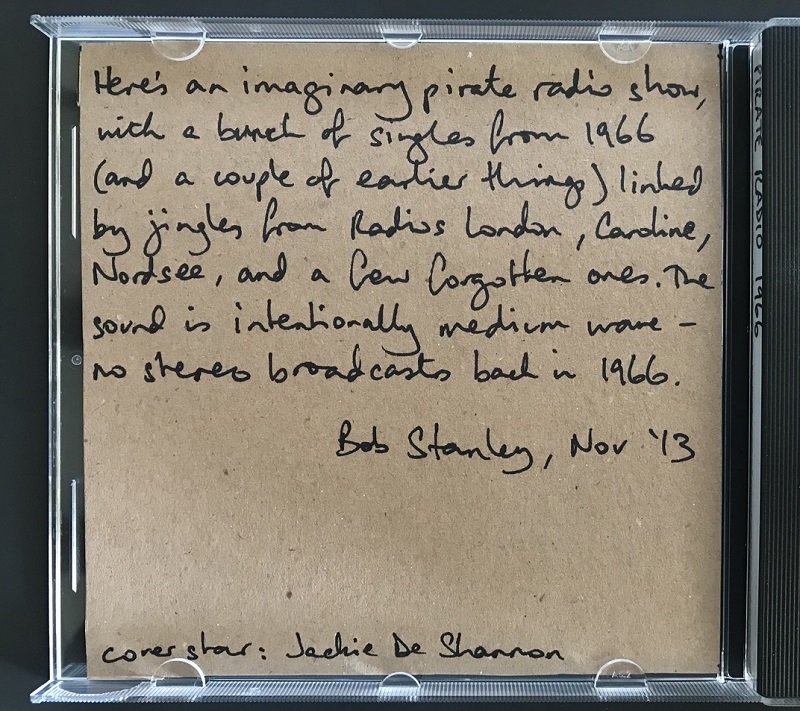 Here's an imaginary pirate radio show,
with a bunch of singles from 1966
(and a couple of earlier things) linked
by jingles from Radios London, Caroline,
Nordsee, and a few forgotten ones. The
sound is intentionally medium wave –
no stereo broadcasts back in 1966.
Bob Stanley, Nov '13
cover star: Jackie De Shannon
PIRATE RADIO 1966